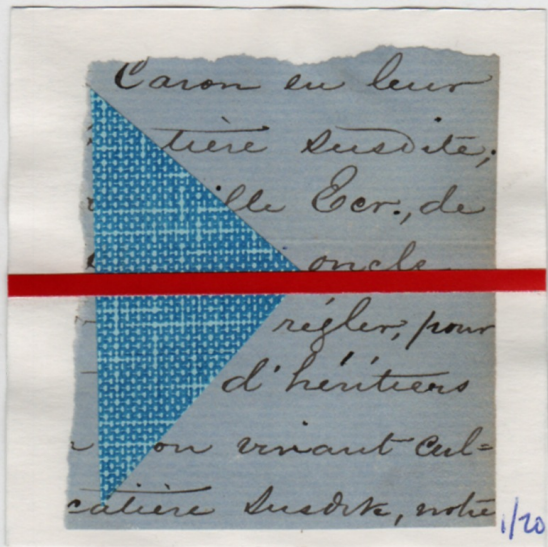 Caron en leur
tière susdite;
ille Ecr., de
oncle
régler, pour
d'héritiers
on vivant cul=
catière susdite, notre
1/20